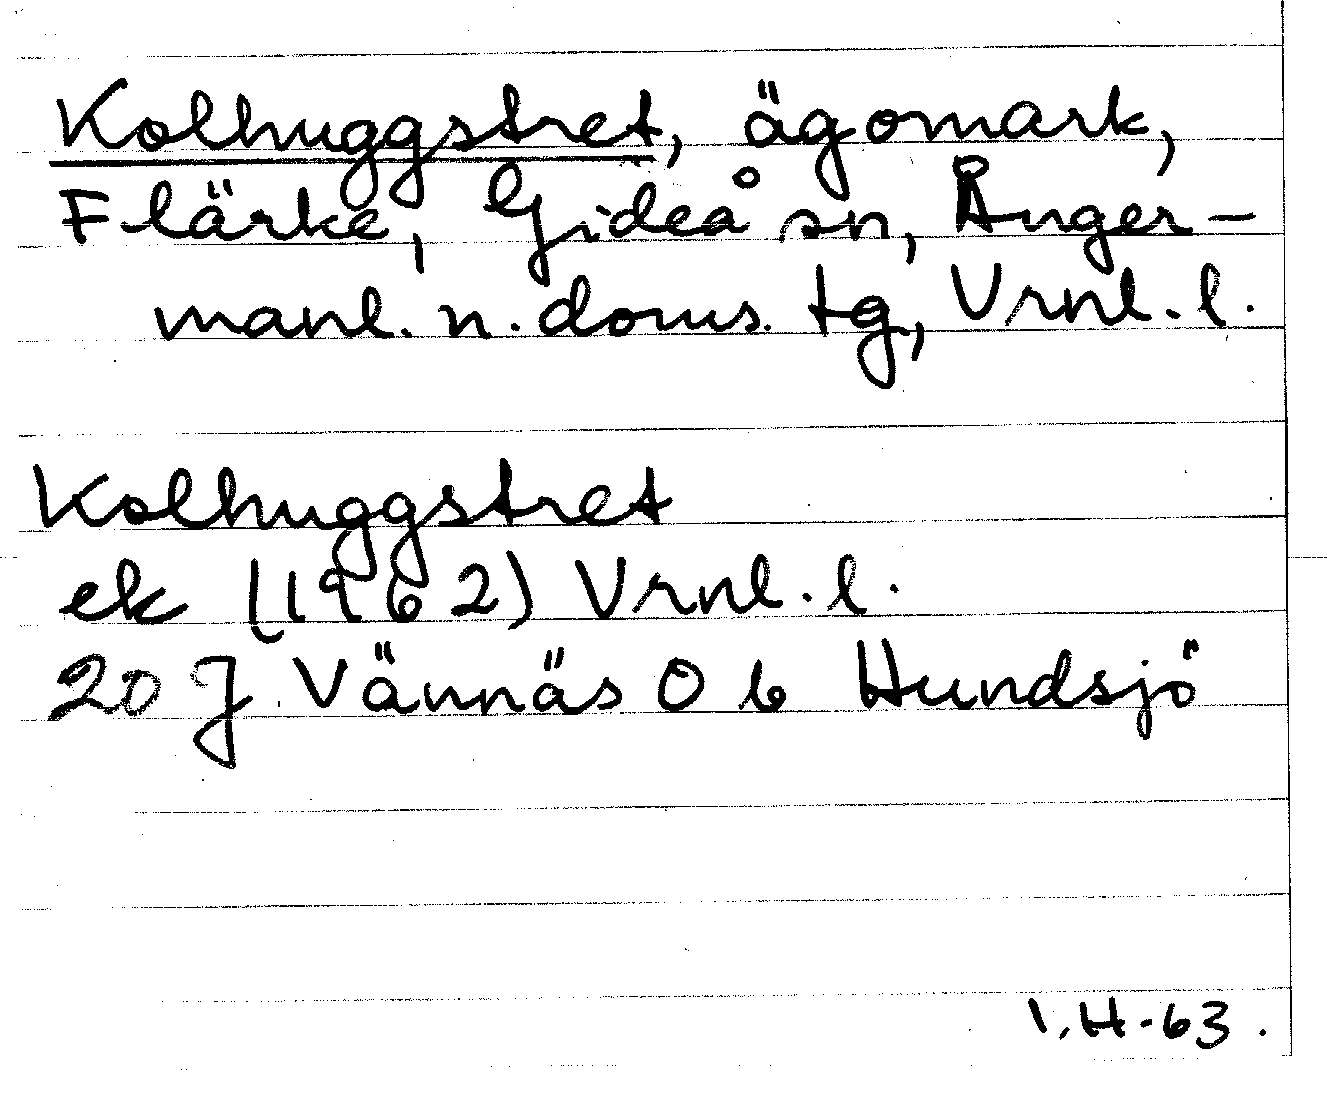 Kolhuggstret, ägomark,
Flärke, Gideå sn, Ånger-
manl. n. doms. tg, Vrnl. l.
Kolhuggstret
ek (1962) Vrnl. l.
20 J Vännäs O b Hundsjö
I.H-63.